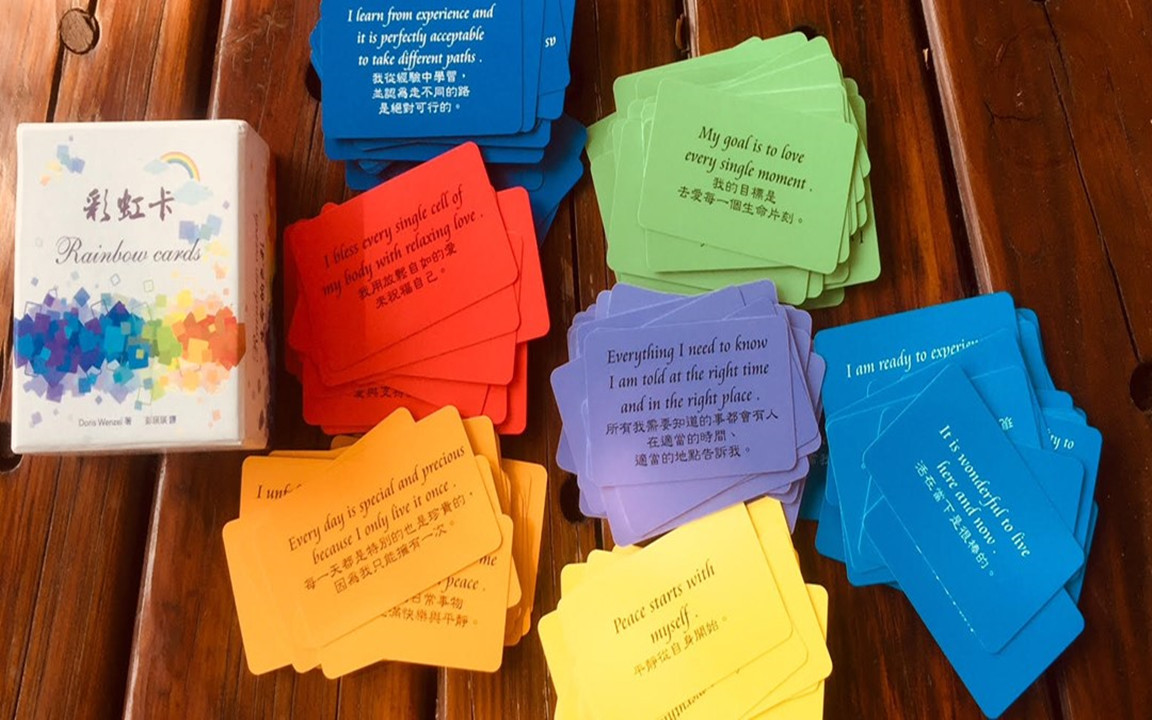 彩虹卡
Rainbow cards
Doris Wenzel 著
I learn from experience and
it is perfectly acceptable
to take different paths .
我從經驗中學習，
並認為走不同的路
是絕對可行的。
My goal is to love
every single moment .
我的目標是
去愛每一個生命片刻。
I bless every single cell of
my body with relaxing love .
我用放輕鬆自如的愛
來祝福自己。
Everything I need to know
I am told at the right time
and in the right place .
所有我需要知道的事都會有人
在適當的時間、
適當的地點告訴我。
I am ready to
It is wonderful to live
here and now .
活在當下是很棒的。
to
Every day is special and precious
because I only live it once .
每一天都是特別的也是珍貴的，
因為我只能擁有一次。
I
me
peace .
日常事物
滿快樂與平靜。
Peace starts with
myself .
平靜從自身開始。